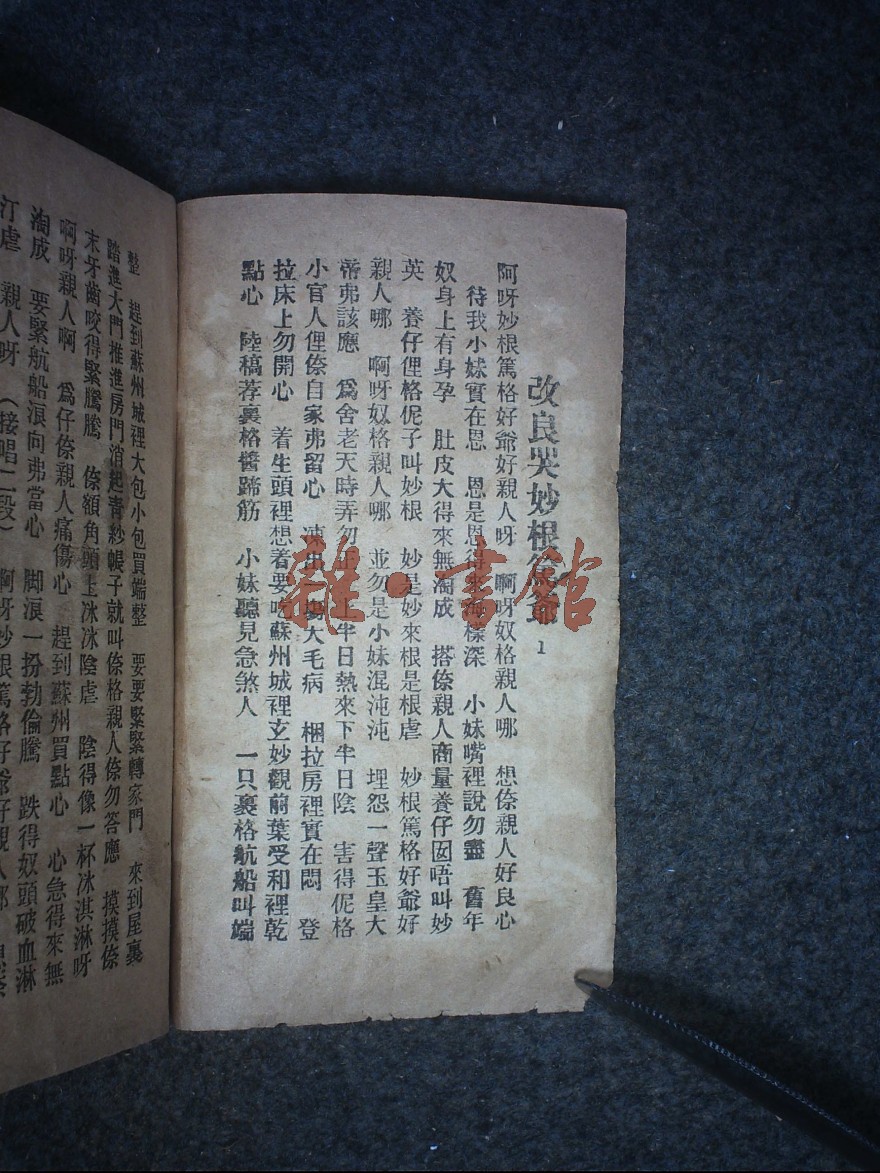 改良哭妙根篤爺 1
阿呀妙根篤格好爺好親人呀 啊呀奴格親人哪 想倷親人好良心
待我小妹實在恩 恩是恩得來海樣深 小妹嘴裡說勿盡 舊年
奴身上有身孕 肚皮大得來無淘成 搭倷親人商量養仔囡唔叫妙
英 養仔俚格伲子叫妙根 妙是妙來根是根虐 妙根篤格好爺好
親人哪 啊呀奴格親人哪 並勿是小妹混沌沌 埋怨一聲玉皇大
帝弗該應 爲舍老天時弄勿正 上半日熱來下半日陰 害得伲格
小官人俚倷自家弗留心 凍出一塲大毛病 梱拉房裡實在悶 登
拉床上勿開心 着生頭裡想着要吃蘇州城裡玄妙觀前葉受和裡乾
點心 陸稿荐裏格醬蹄筋 小妹聽見急煞人 一只裹格航船叫端
整 趕到蘇州城裡大包小包買端整 要要緊緊轉家門 來到屋裏
踏進大門推進房門消起青紗帳子就叫倷格親人倷勿答應 摸摸倷
末牙齒咬得緊騰騰 倷額角頭上冰冰陰虐 陰得像一杯冰淇淋呀
啊呀親人啊 爲仔倷親人痛傷心 趕到蘇州買點心 心急得來無
淘成 要緊航船浪向弗當心 脚浪一扮勃倫騰 跌得奴頭破血淋
汀虐 親人呀（接唱二段） 阿呀妙根篤格好爺好親人哪
雜·書館